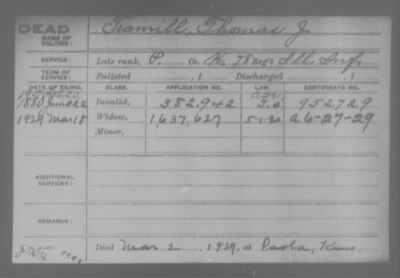 DEAD
NAME OF SOLDIER: Tramill, Thomas J.
SERVICE: Late rank, P. Co. K, 78 Reg't Ill. Inf.
TERM OF SERVICE: Enlisted , 1 Discharged , 1
DATE OF FILING. CLASS. APPLICATION NO. LAW. CERTIFICATE NO.
1880 June 22 Invalid, 382,942 952729
1929 Mar 18 Widow, 1,637,627 5-1-20 a6-27-29
Minor,
ADDITIONAL SERVICES:
REMARKS:
Died Mar 2, 1929, at Paola, Kans.